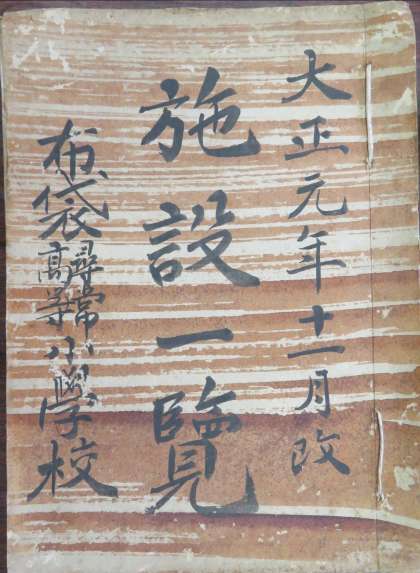 大正元年十一月改
施設一覽
布袋尋常高等小學校